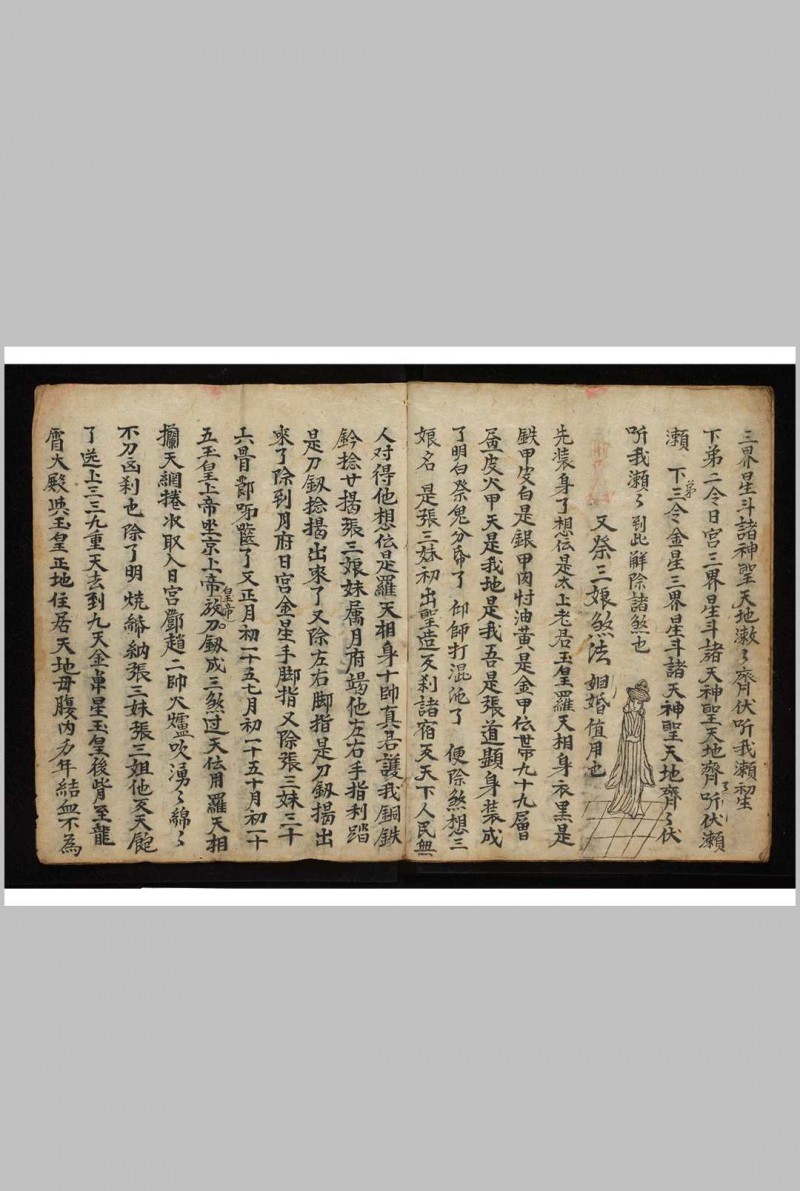 三界星斗諸神聖天地瀨〻齊伏听我瀨初生
下弟二令日宮三界星斗諸天神聖天地齊了听伏瀨
瀨 下弟三令金星三界星斗諸天神聖天地齊〻伏
听我瀨〻到此解除諸煞也
又祭三娘煞法 姻婚值用也
先装身了想伝是太上老居玉皇羅天相身衣黑是
鉄甲皮白是銀甲肉忖油黄是金甲伝世帶九十九層
皮火甲天是我地是我吾是張道顕身装成
了明白祭鬼分了仰師打混沌了 便除煞想三
娘名 是張三妹初出聖造反刹諸宿反天下人民無
人对得他想伝是羅天相身十帥真君護我銅鉄
鈐捻廿揚張三娘妹属月府竭他左右手指利踏
是刀釼捻揭出來了又除左右脚指是刀釼揚出
來了除到月府日宮金星手脚指又除張三妹三十
六骨了又正月初一十五七月初一十五十月初一十
五玉皇上帝坐京上帝皇帝放刀釼成三煞过天伝用羅天相
攔天網捲水取入日宮鄧趙二帥火爐吹湧〻綿〻
不刀凶刹也除了明燒納張三妹張三姐他反天飽
了送上三三九重天去到九天金串星玉皇後背至龍
霄大殿與玉皇正地住居天地母腹内万年結血不為